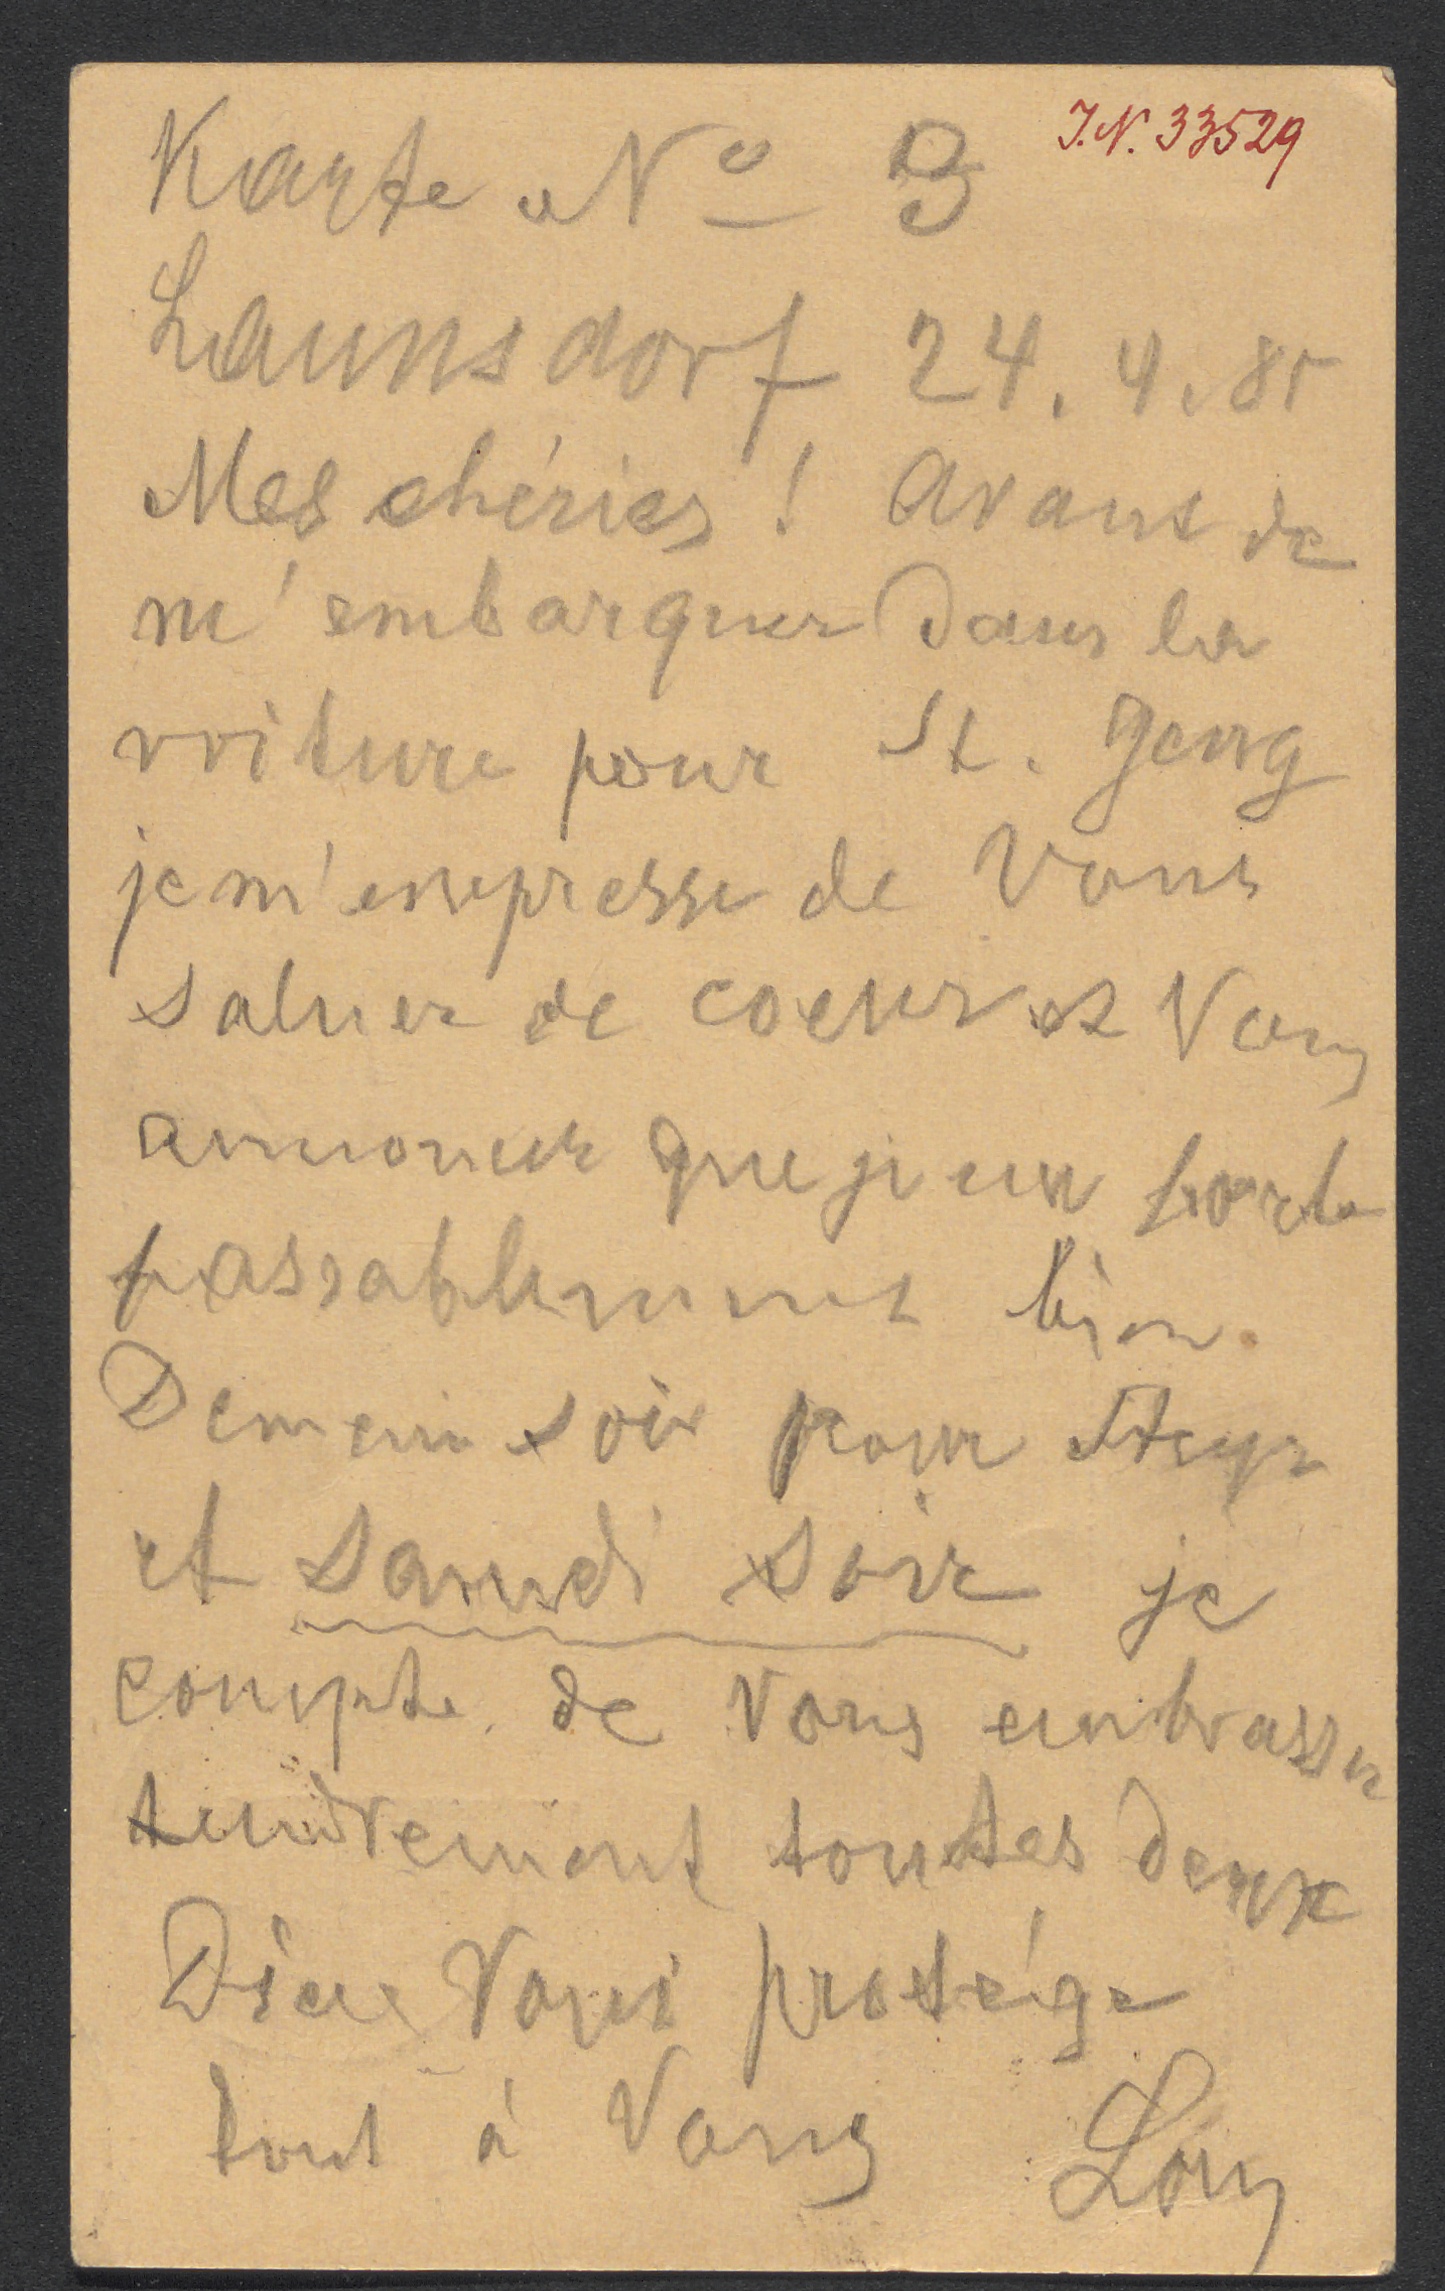 Karte No 3
J.N. 33529
Launsdorf 24. 4. 85
Mes chéries! Avant de
m'embarquer dans la
voiture pour St. Georg
je m'empresse de Vous
saluer de coeur et Vous
annoncer que je me porte
passablement bien.
Demain soir pour Steyr
et Samedi soir je
compte de Vous embrasser
tendrement toutes deux
Dieu Vous protége
tout à Vous